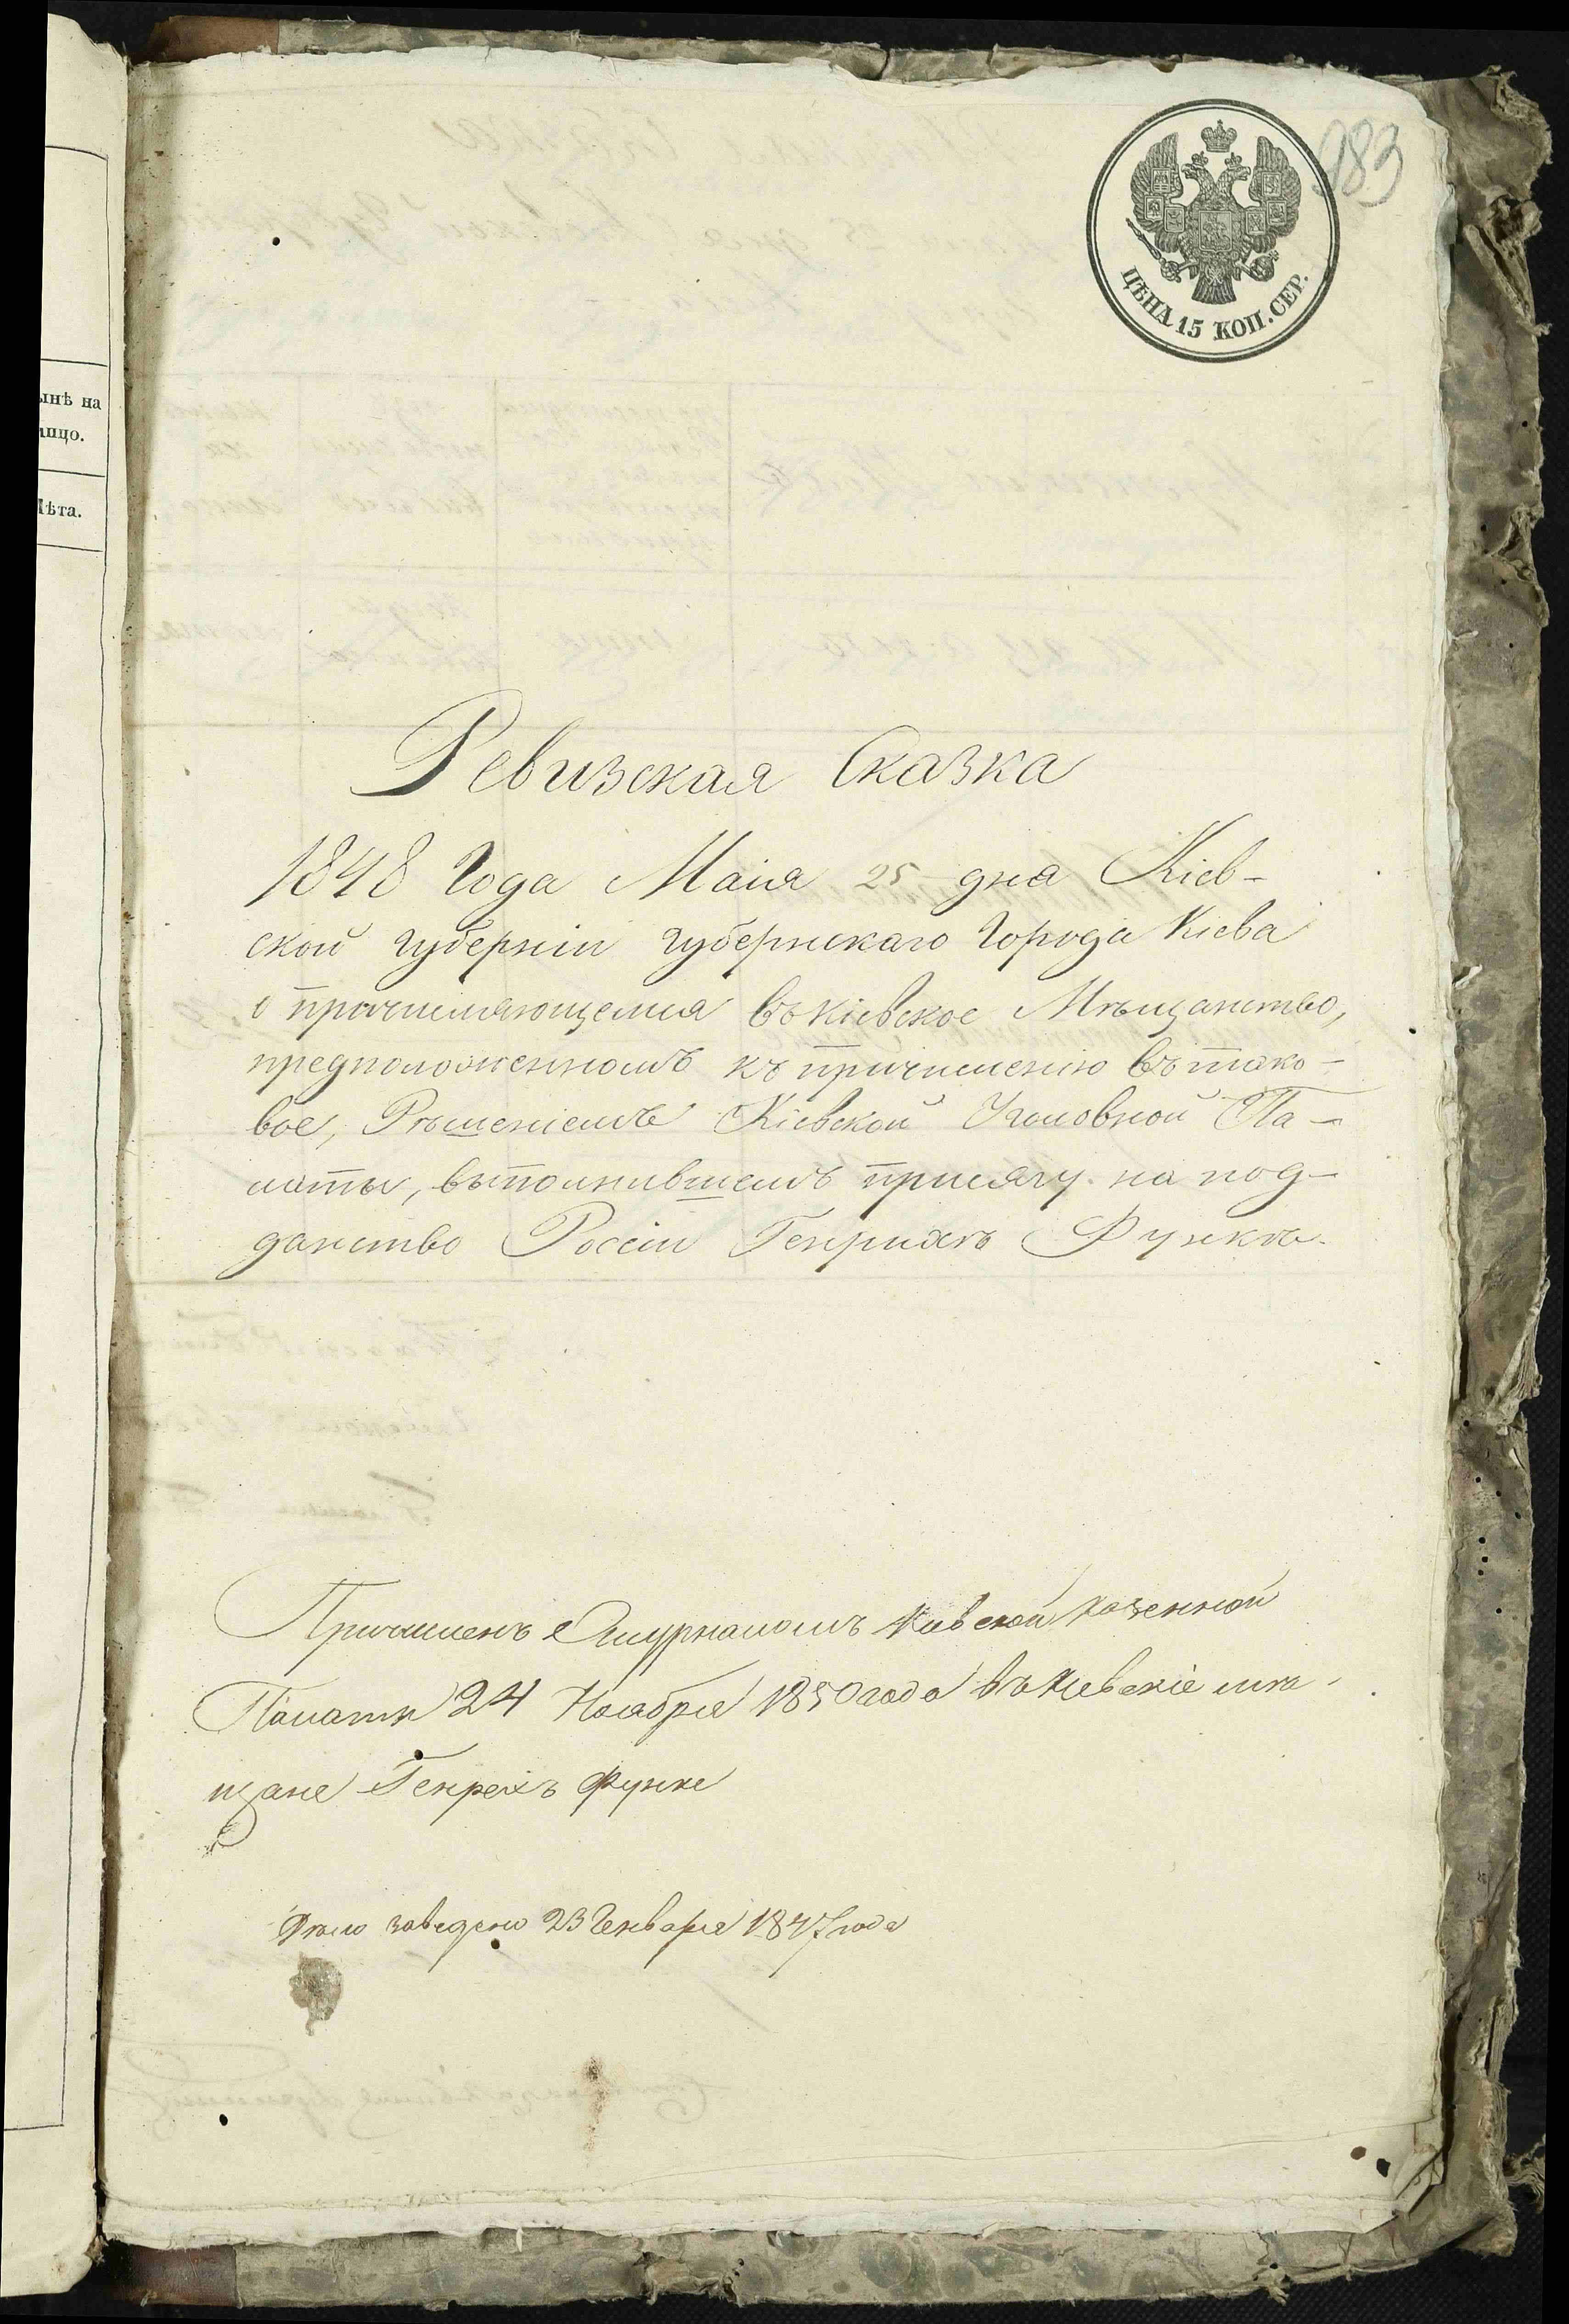 983
ЦѢНА 15 КОП. СЕР.
ынѣ на
лицо.
Лѣта.
Ревизская Сказка
1848 Года Маія 25 дня Кіев-
ской губерніи губернскаго Города Кіева
о причисляющемся въ кіевское Мѣщанство,
предположенномъ къ причисленію въ тако-
вое, Рѣшеніемъ Кіевской Уголовной Па-
латы, выполнившемъ присягу на под-
данство Росіи Генрихѣ Функѣ.
Причисленъ Журналомъ Кіевской казенной
Палаты 24 Ноября 1850 года въ Кіевскіе мѣ-
щане Генрехъ Функе
Дѣло заведено 23 Генваря 1847 года